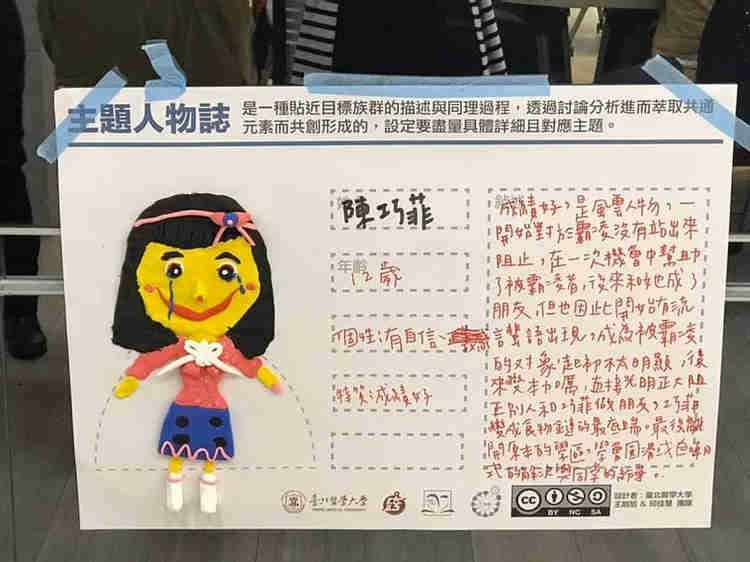 主題人物誌
是一種貼近目標族群的描述與同理過程，透過討論分析進而萃取共通
元素而共創形成的，設定要盡量具體詳細且對應主題。
陳巧菲
年齡
12歲
個性：有自信、
特質：成績好
成績好，是風雲人物，一
開始對於霸凌沒有站出來
阻止，在一次機會中幫助
了被霸凌者，後來和她成了
朋友，但也因此開始有流
言蜚語出現，成為被霸凌
的對象，起初不太明顯，後
來變本加厲，直接光明正大阻
止別人和巧菲做朋友，巧菲
變成食物鏈的最底端。最後離
開原本的學區，學會圓滑或自嘲
式的解決與同學的紛爭。
臺北醫學大學
TAIPEI MEDICAL UNIVERSITY
CC
BY NC SA
設計者：臺北醫學大學
團隊